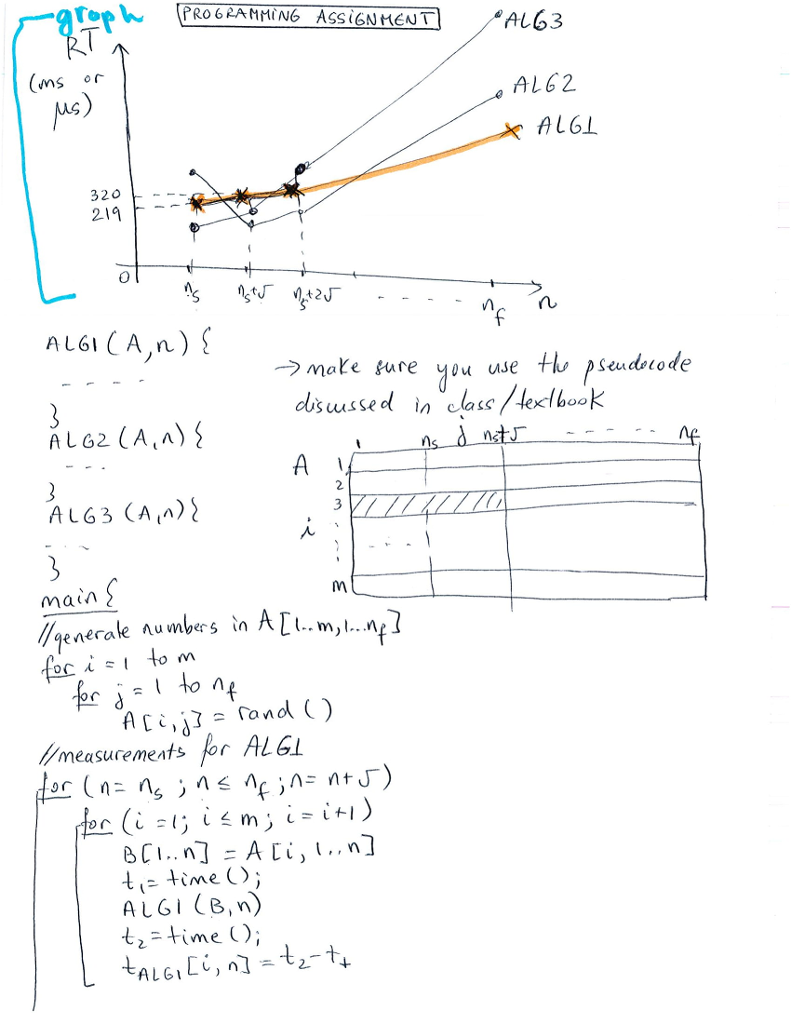 graph
PROGRAMMING ASSIGNMENT
RT
(ms or
μs)
ALG3
ALG2
ALG1
320
219
0
n_s
n_s+5
n_s+2·5
- - - - -
n_f
n
ALG1(A,n) {
- - - - -
}
→ make sure you use the pseudocode
discussed in class/textbook
ALG2(A,n) {
- - -
}
ALG3(A,n) {
- - -
}
1 n_s j n_s+5 - - - - - n_f
A 1
2
3
i
- - - -
m
main {
//generate numbers in A[1..m,1..n_f]
for i=1 to m
for j=1 to n_f
A[i,j] = rand()
//measurements for ALG1
for (n= n_s ; n ≤ n_f ; n= n+5)
for (i=1; i ≤ m; i = i+1)
B[1..n] = A[i, 1..n]
t₁=time();
ALG1(B,n)
t₂=time();
t_ALG1[i,n] = t₂-t₁